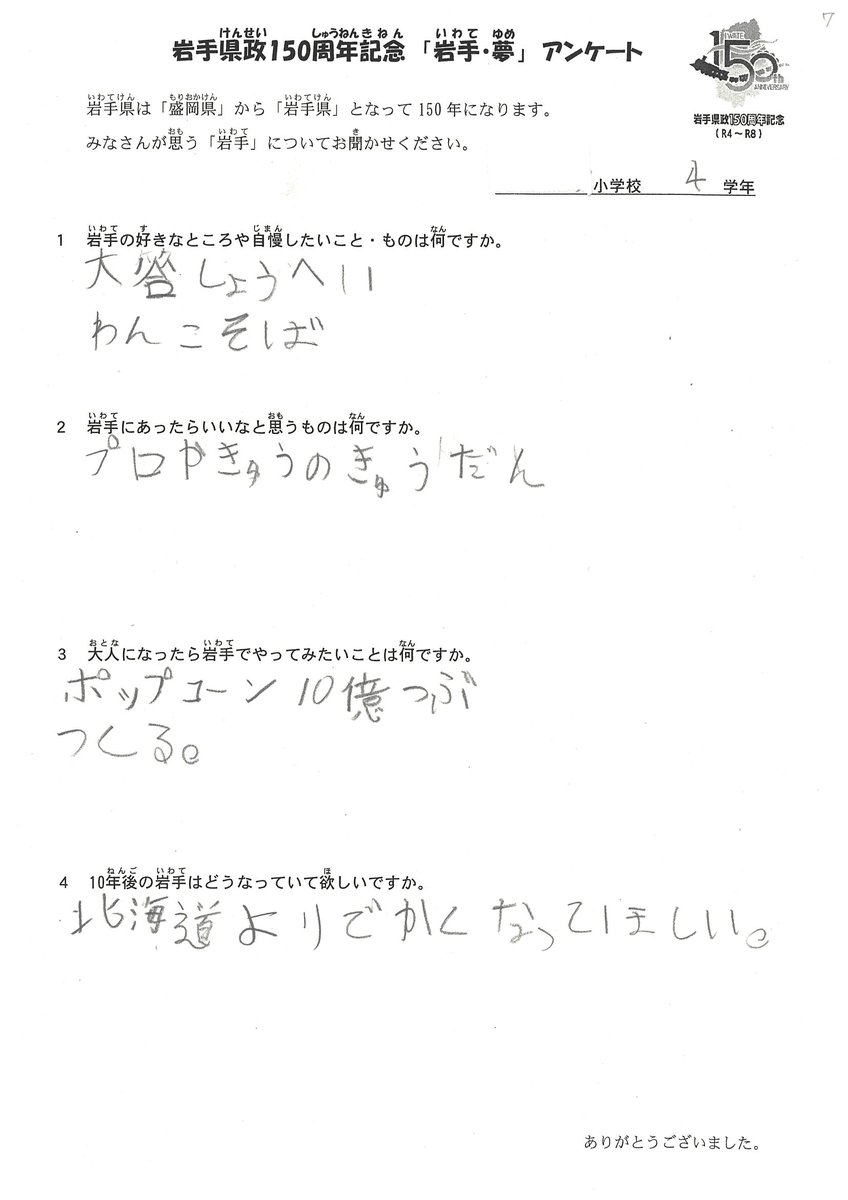 7
岩手県政150周年記念「岩手・夢」アンケート
IWATE
150th
ANNIVERSARY
岩手県政150周年記念
(R4～R8)
岩手県は「盛岡県」から「岩手県」となって150年になります。
みなさんが思う「岩手」についてお聞かせください。
小学校 4 学年
1 岩手の好きなところや自慢したいこと・ものは何ですか。
大答しょうへい
わんこそば
2 岩手にあったらいいなと思うものは何ですか。
プロやきゅうのきゅうだん
3 大人になったら岩手でやってみたいことは何ですか。
ポップコーン10億つぶ
つくる。
4 10年後の岩手はどうなっていて欲しいですか。
北海道よりでかくなってほしい。
ありがとうございました。